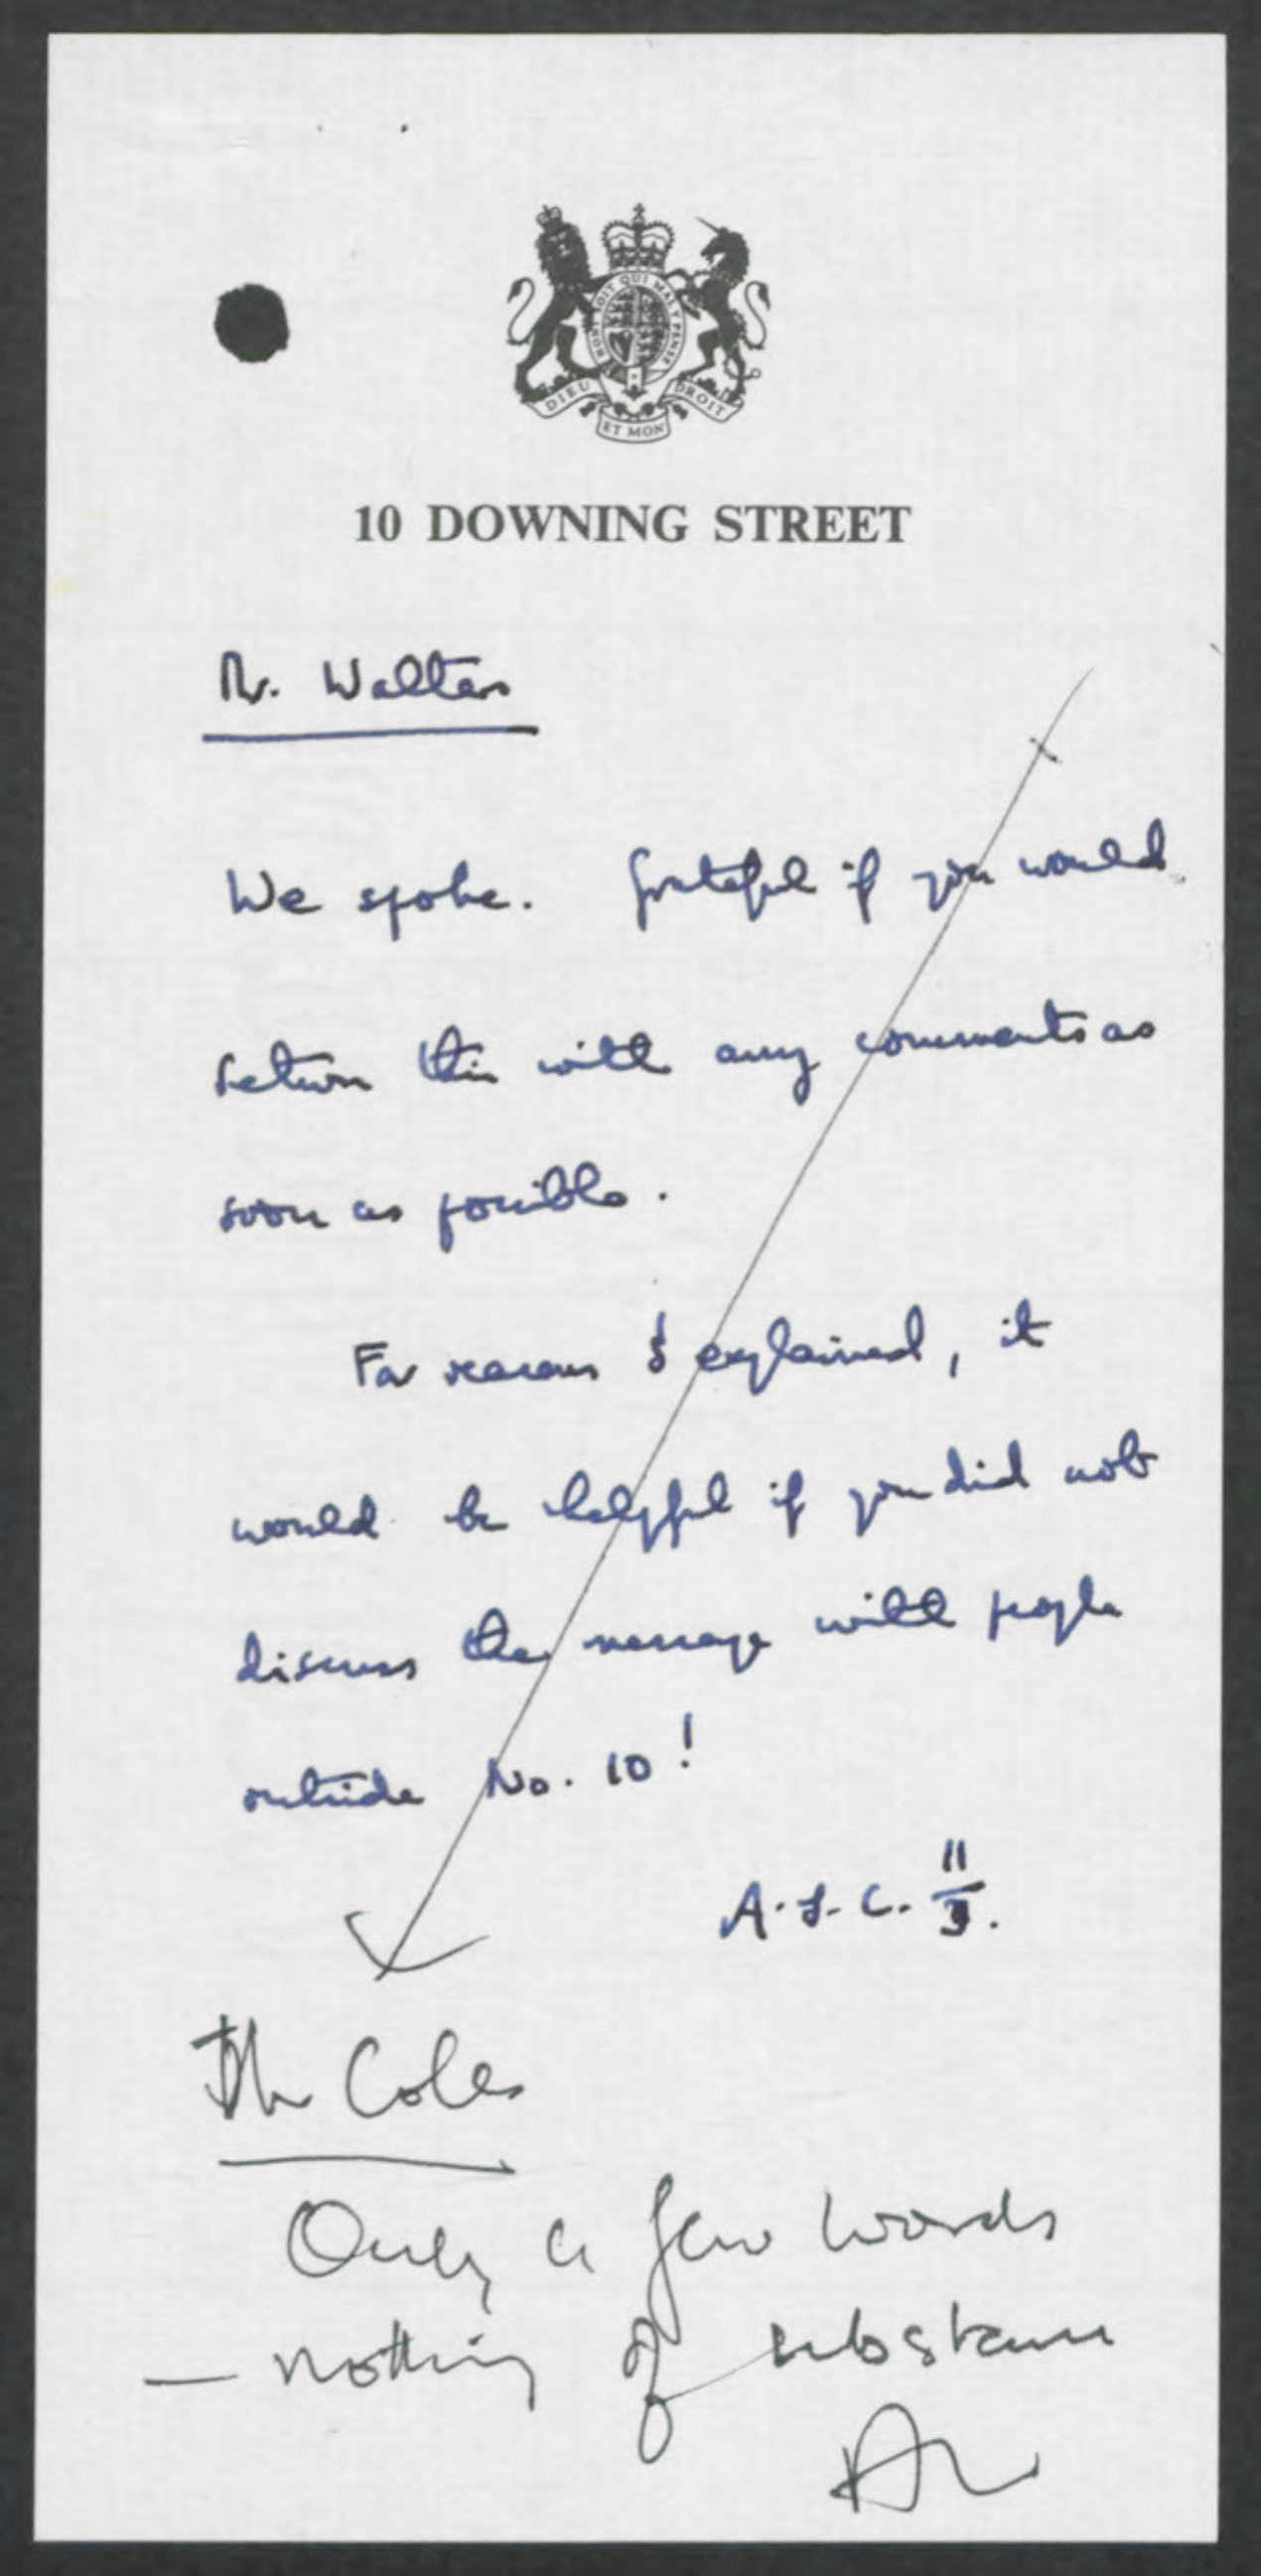 HONI SOIT QUI MAL Y PENSE
DIEU ET MON DROIT
10 DOWNING STREET
Mr. Walters
We spoke. Grateful if you would
return this with any comments as
soon as possible.
For reasons I explained, it
would be helpful if you did not
discuss the message with people
outside No. 10!
A.J.C. 11/3.
Mr Coles
Only a few words
— nothing of substance